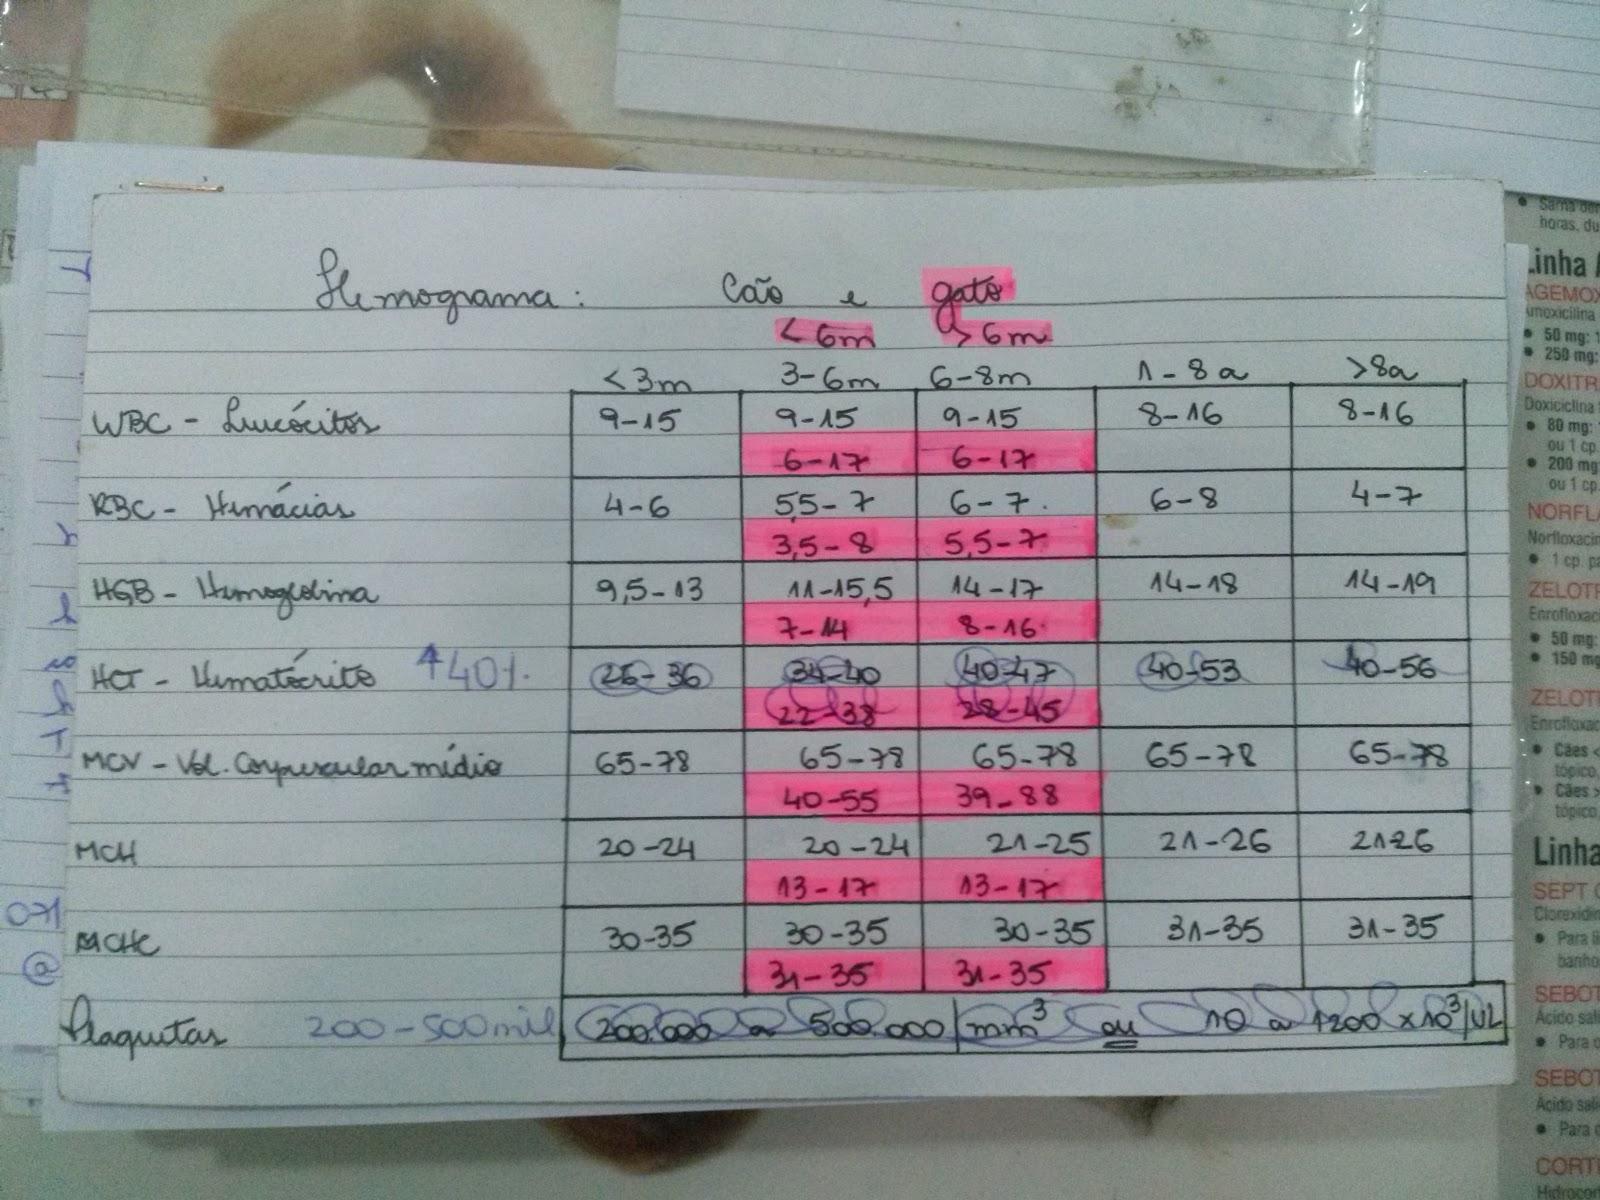 Hemograma: Cão e gato
< 6m > 6m
< 3m 3-6m 6-8m 1-8a >8a
WBC - Leucócitos 9-15 9-15 9-15 8-16 8-16
6-17 6-17
RBC - Hemácias 4-6 5,5-7 6-7 6-8 4-7
3,5-8 5,5-7
HGB - Hemoglobina 9,5-13 11-15,5 14-17 14-18 14-19
7-14 8-16
HCT - Hematócrito ↑40% 26-36 34-40 40-47 40-53 40-56
22-38 28-45
MCV - Vol. Corpuscular médio 65-78 65-78 65-78 65-78 65-78
40-55 39-88
MCH 20-24 20-24 21-25 21-26 21-26
13-17 13-17
MCHC 30-35 30-35 30-35 31-35 31-35
31-35 31-35
Plaquetas 200-500mil 200.000 a 500.000/mm³ ou 10 a 1200 x10³/UL
071
@
Sarna
horas, du
Linha A
AGEMOX
Amoxicilina
• 50 mg: 1
• 250 mg:
DOXITR
Doxiciclina
• 80 mg:
ou 1 cp.
• 200 mg
ou 1 cp.
NORFL
Norfloxacin
• 1 cp. pa
ZELOTR
Enrofloxac
• 50 mg:
• 150 mg
ZELOTR
Enrofloxac
• Cães <
tópico,
• Cães >
tópico,
Linha
SEPT
Clorexidin
• Para
banho
SEBOT
Ácido sali
• Para c
SEBOT
Ácido sali
• Para c
CORTI
Hidrocort